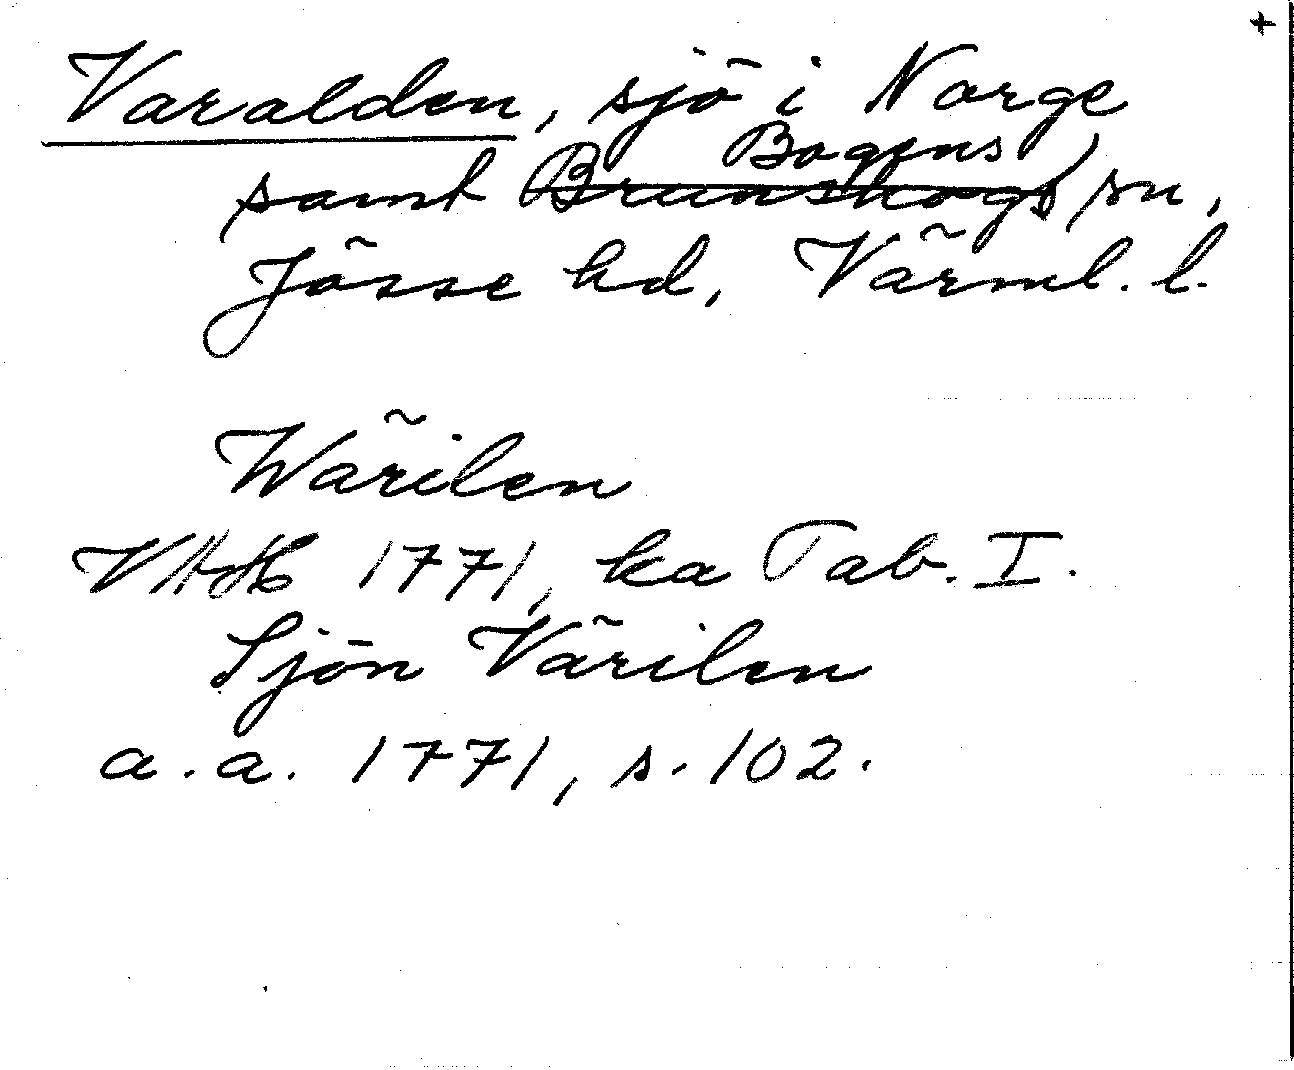 +
Varalden, sjö i Norge
samt Brunskogs Bogens sn,
Jösse hd, Värml. l.
Wärilen
1771, ka Tab. I.
Sjön Värilen
a. a. 1771, s. 102.